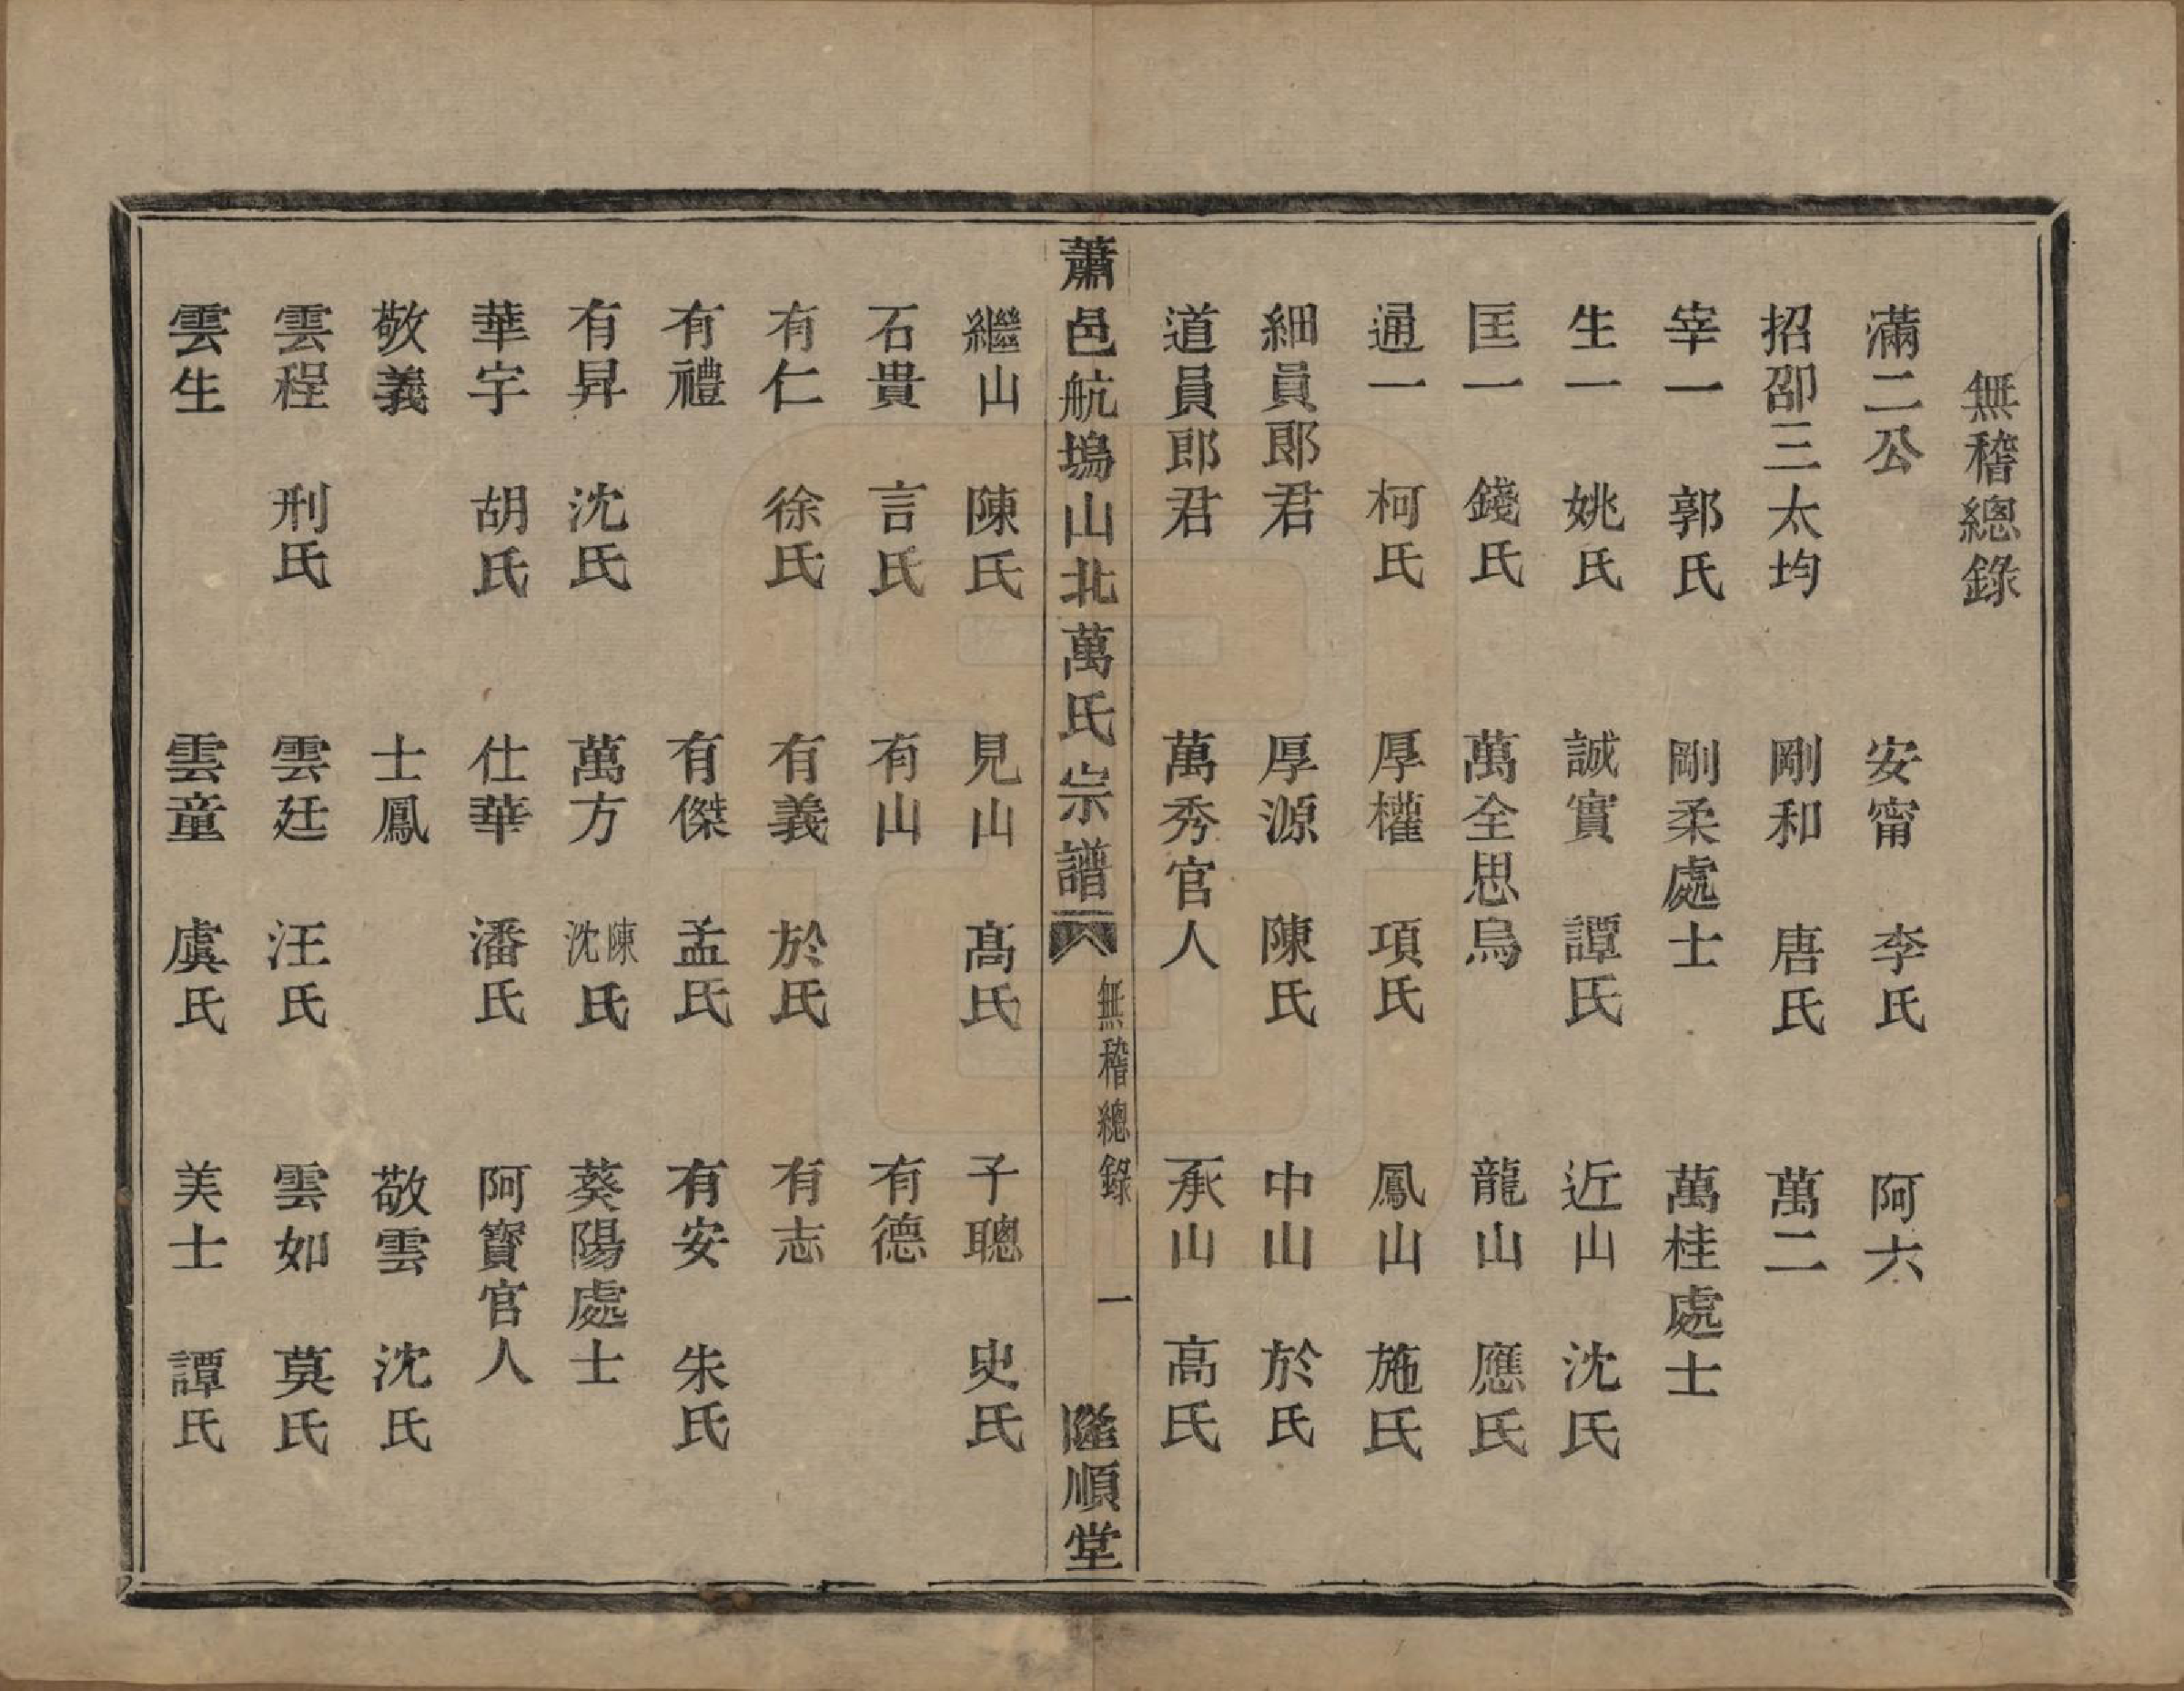 無稽總錄
滿二公　安甯　李氏　阿六
招卲三太均　剛和　唐氏　萬二
宰一　郭氏　剛柔處士　萬桂處士
生一　姚氏　誠實　譚氏　近山　沈氏
匡一　錢氏　萬全思烏　龍山　應氏
通一　柯氏　厚權　項氏　鳳山　施氏
細員郎君　厚源　陳氏　中山　於氏
道員郎君　萬秀官人　承山　高氏
蕭邑航塢山北萬氏宗譜　無稽總錄　一　隆順堂
繼山　陳氏　見山　髙氏　子聰　史氏
石貴　言氏　有山　有德
有仁　徐氏　有義　於氏　有志
有禮　有傑　孟氏　有安　朱氏
有昇　沈氏　萬方　陳沈氏　葵陽處士
華宇　胡氏　仕華　潘氏　阿寶官人
敬義　士鳳　敬雲　沈氏
雲程　刑氏　雲廷　汪氏　雲如　莫氏
雲生　雲童　虞氏　美士　譚氏